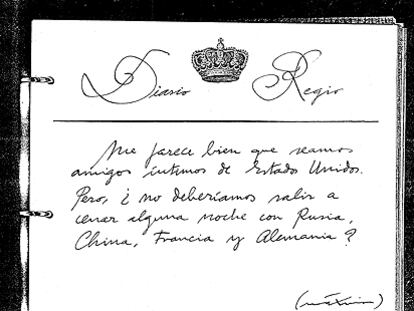 Diario Regio
Me parece bien que seamos
amigos íntimos de Estados Unidos.
Pero, ¿no deberíamos salir a
cenar alguna noche con Rusia,
China, Francia y Alemania?
(máximo)